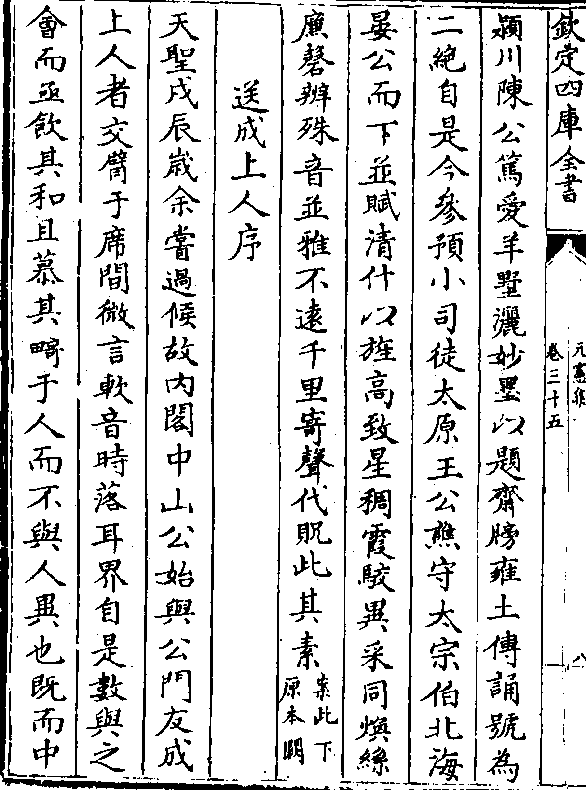 欽定四庫全書
元憲集
卷三十五
八
潁川陳公篤愛羊墅灑妙墨以題齋牓雍土傳誦號為
二絕自是今參預小司徒太原王公燕守太宗伯北海
晏公而下並賦清什以旌高致星稠霞駮異采同煥絲
廉磬辨殊音並雅不遠千里寄聲代貺此其素
案此下
原本闕
送成上人序
天聖戊辰歲余嘗過候故内閣中山公始與公門友成
上人者交臂于席間微言軟音時落耳界自是數與之
會而亟飲其和且慕其畸于人而不與人異也既而中